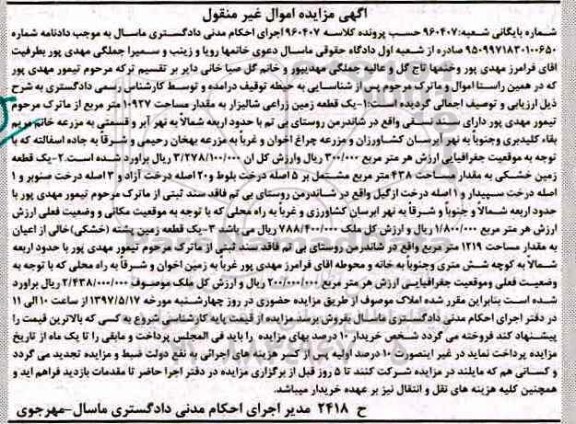 آگهی مزایده اموال غیر منقول
شماره بایگانی شعبه: ۹۶۰۴۰۷ حسب پرونده کلاسه ۹۶۰۴۰۷ اجرای احکام مدنی دادگستری ماسال به موجب دادنامه شماره
۹۵۰۹۹۷۱۸۳۰۱۰۰۶۵۰ صادره از شعبه اول دادگاه حقوقی ماسال دعوی خانمها رویا و زینب و سمیرا جملگی مهدی پور بطرفیت
آقای فرامرز مهدی پور وخانمها تاج گل و عالیه جملگی مهدیپور و خانم گل صبا خانی دایر بر تقسیم ترکه مرحوم تیمور مهدی پور
که در همین راستا اموال و ماترک مرحوم پس از شناسایی به حیطه توقیف درآمده و توسط کارشناس رسمی دادگستری به شرح
ذیل ارزیابی و توصیف اجمالی گردیده است: ۱-یک قطعه زمین زراعی شالیزار به مقدار مساحت ۱۰۹۲۷ متر مربع از ماترک مرحوم
تیمور مهدی پور دارای سند نسقی واقع در شاندرمن روستای بی تم با حدود اربعه شمالاً به نهر آبر و قسمتی به مزرعه خانم مریم
بقاء کلیدبری وجنوباً به نهر ابرسان کشاورزان و مزرعه چراغ اخوان و غرباً به مزرعه بهخان رحیمی و شرقاً به جاده اسفالته که با
توجه به موقعیت جغرافیایی ارزش هر متر مربع ۳۰۰/۰۰۰ ریال وارزش کل آن ۳/۲۷۸/۱۰۰/۰۰۰ ریال براورد شده است.۲-یک قطعه
زمین خشکی به مقدار مساحت ۴۳۸ متر مربع مشتمل بر ۵ اصله درخت بلوط و۲۰ اصله درخت آزاد و ۳ اصله درخت صنوبر و ۱
اصله درخت سپیدار و ۱ اصله درخت ازگیل واقع در شاندرمن روستای بی تم فاقد سند ثبتی از ماترک مرحوم تیمور مهدی پور با
حدود اربعه شمالاً و جنوباً و شرقاً به نهر ابرسان کشاورزی و غرباً به راه محلی که با توجه به موقعیت مکانی و وضعیت فعلی ارزش
هر متر مربع ۱/۸۰۰/۰۰۰ ریال و ارزش کل ملک ۷۸۸/۴۰۰/۰۰۰ ریال می باشد ۳-یک قطعه زمین پشته (خشکی) خالی از اعیان
به مقدار مساحت ۱۲۱۹ متر مربع واقع در شاندرمن روستای بی تم فاقد سند ثبتی از ماترک مرحوم تیمور مهدی پور با حدود اربعه
شمالاً به کوچه شش متری وجنوباً به خانه و محوطه آقای فرامرز مهدی پور غرباً به زمین اخوان و شرقاً به راه محلی که با توجه به
وضعیت فعلی وموقعیت جغرافیایی ارزش هر متر مربع ۲۰۰/۰۰۰/۰۰۰ ریال و ارزش کل ملک موصوف ۲/۴۳۸/۰۰۰/۰۰۰ ریال براورد
شده است بنابراین مقرر شده املاک موصوف از طریق مزایده حضوری در روز چهارشنبه مورخه ۱۳۹۷/۵/۱۷ از ساعت ۱۰ الی ۱۱
در دفتر اجرای احکام مدنی دادگستری ماسال بفروش برسد مزایده از قیمت پایه کارشناسی شروع به کسی که بالاترین قیمت را
پیشنهاد کند فروخته می گردد شخص خریدار ۱۰ درصد بهای مزایده را باید فی المجلس پرداخت و مابقی را تا یک ماه از تاریخ
مزایده پرداخت نماید در غیر اینصورت ۱۰ درصد اولیه پس از کسر هزینه های اجرائی به نفع دولت ضبط و مزایده تجدید می گردد
و کسانی هم که مایلند در مزایده شرکت کنند تا ۵ روز قبل از برگزاری مزایده در دفتر اجرا حاضر تا مقدمات بازدید فراهم اید و
همچنین کلیه هزینه های نقل و انتقال نیز بر عهده خریدار میباشد.
ح ۲۴۱۸ مدیر اجرای احکام مدنی دادگستری ماسال-مهرجوی